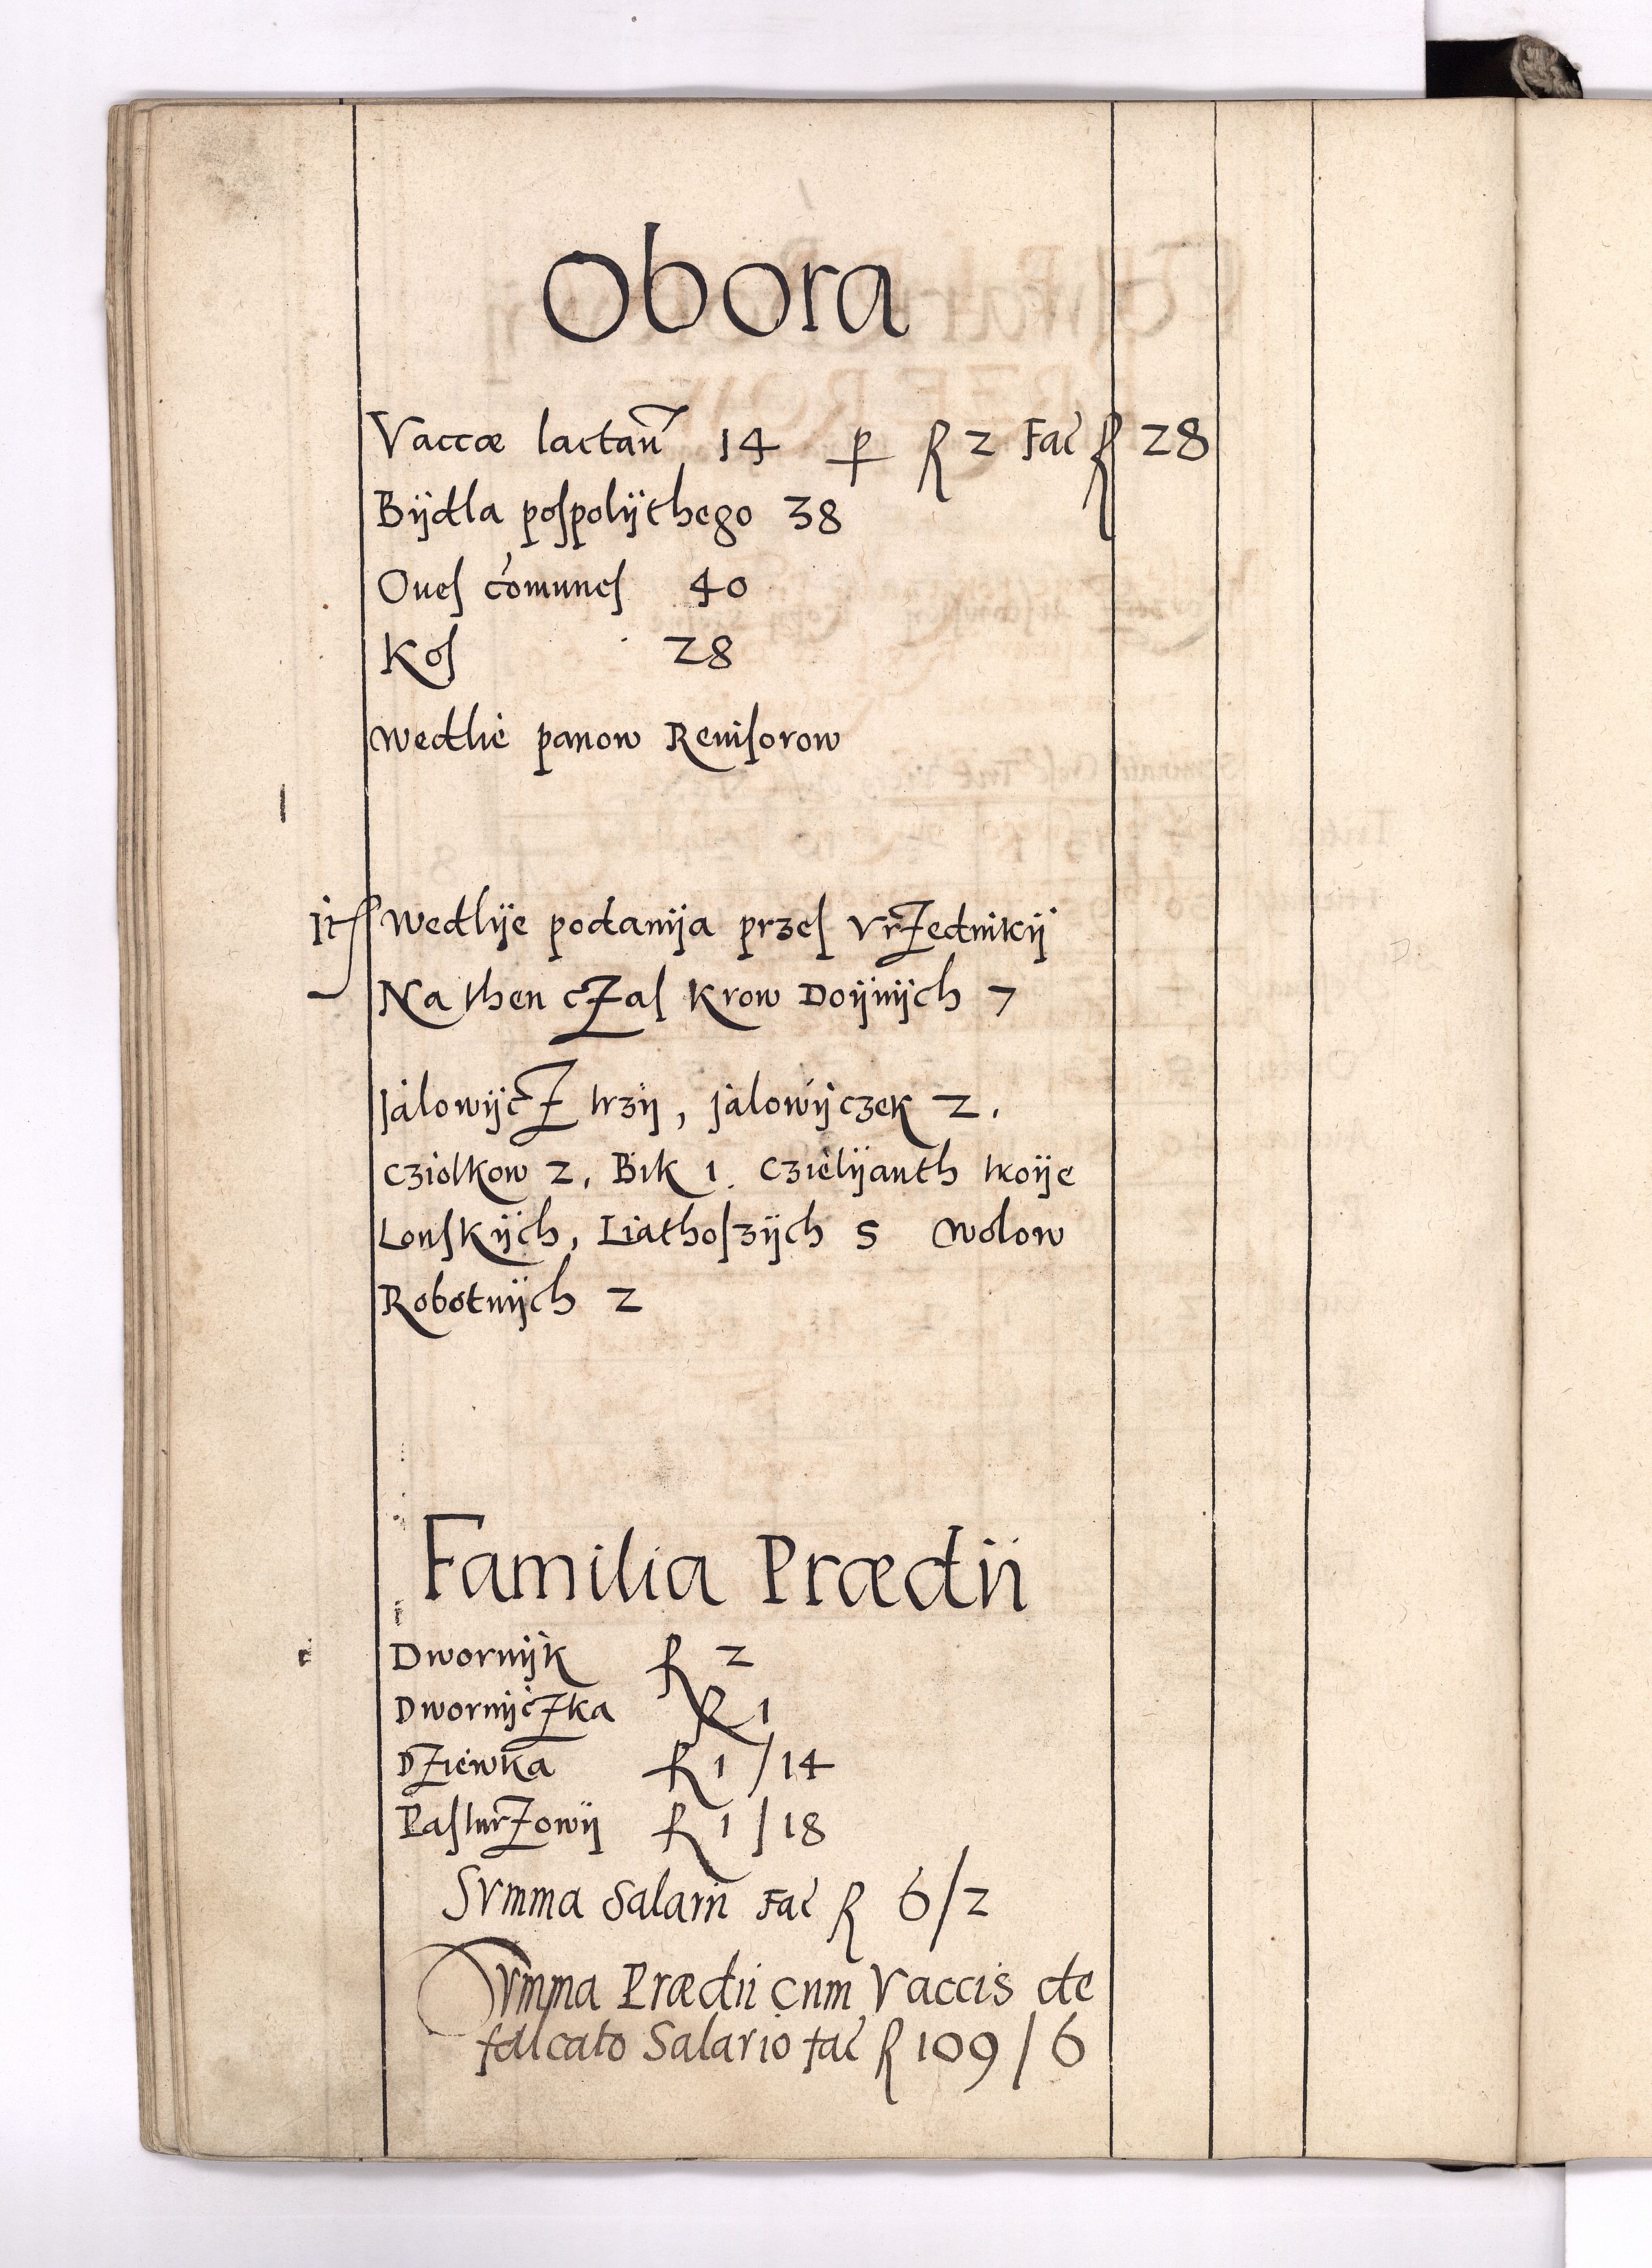 Obora
Vaccæ lactañ 14 p ꝶ 2 Faċ ꝶ 28
Bÿdla poſpolÿthego 38
Oueſ comuneſ 40
Koſ 28
Wedlie panow Reuiſorow
It Wedlÿe podanÿa przeſ VrZednikÿ
Na then cZaſ Krow Doÿnÿch 7
Jalowÿcz trzÿ, jalowÿczek 2.
Cziolkow 2, Bik 1. Czielÿanth troÿe
Lonſkÿch, Liathoſzÿch 5 Wolow
Robotnÿch 2
Familia Prædii
Dwornÿk ꝶ 2
DwornÿcZka ꝶ 1
DZiewka ꝶ 1 / 14
PaſturZowÿ ꝶ 1 / 18
Svmma Salarii Faċ ꝶ 6/2
Svmma Prædii cum Vaccis de
falcato Salario faċ ꝶ 109 / 6